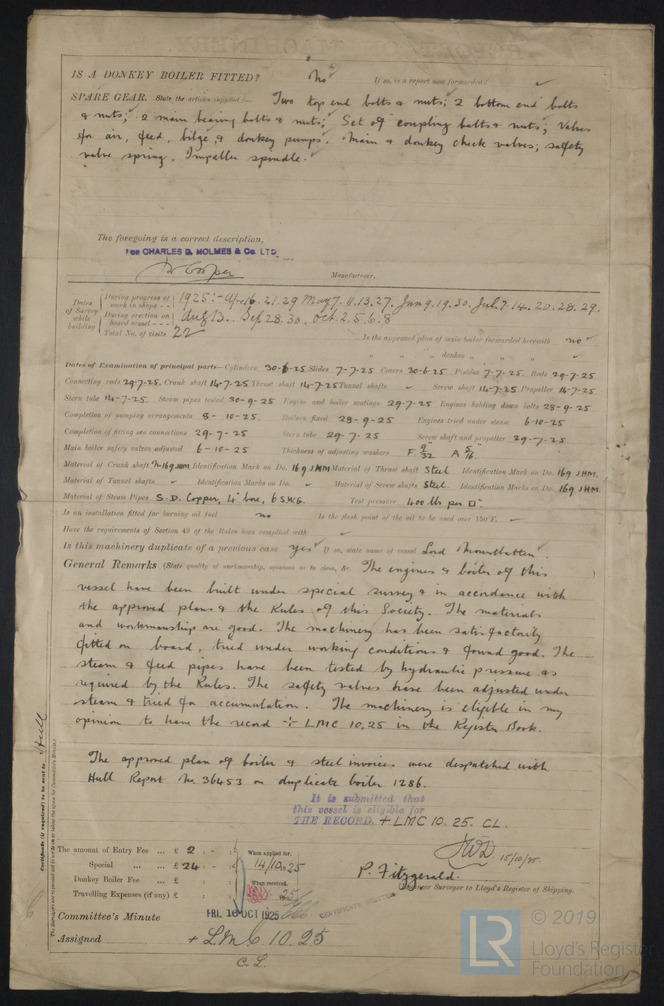 IS A DONKEY BOILER FITTED? No If so, is a report now forwarded?
SPARE GEAR. State the articles supplied:— Two top end bolts & nuts; 2 bottom end bolts
& nuts; 2 main bearing bolts & nuts; Set of coupling bolts & nuts; Valves
for air, feed, bilge, & donkey pumps. Main & donkey check valves; safety
valve spring. Impeller spindle.
The foregoing is a correct description,
FOR CHARLES D. HOLMES & Co. LTD.
Manufacturer.
Dates of Survey while building
During progress of work in shops - - 1925:- Apr 16. 21. 29 May 7. 11. 13. 27. Jun 9. 19. 30. Jul 7. 14. 20. 28. 29.
During erection on board vessel - - - Aug 13. Sep 28. 30. Oct 2. 5. 6. 8
Total No. of visits 22
Is the approved plan of main boiler forwarded herewith no
" " " donkey " "
Dates of Examination of principal parts—Cylinders 30-6-25 Slides 7-7-25 Covers 30-6-25 Pistons 7-7-25 Rods 29-7-25
Connecting rods 29-7-25. Crank shaft 14-7-25 Thrust shaft 14-7-25 Tunnel shafts Screw shaft 14-7-25 Propeller 14-7-25
Stern tube 14-7-25 Steam pipes tested 30-9-25 Engine and boiler seatings 29-7-25 Engines holding down bolts 28-9-25
Completion of pumping arrangements 8-10-25. Boilers fixed 28-9-25 Engines tried under steam 6-10-25
Completion of fitting sea connections 29-7-25 Stern tube 29-7-25 Screw shaft and propeller 29-7-25
Main boiler safety valves adjusted 6-10-25 Thickness of adjusting washers F. 9/32" A 5/16"
Material of Crank shaft Identification Mark on Do. 169 JHM Material of Thrust shaft Steel Identification Mark on Do. 169 JHM.
Material of Tunnel shafts Identification Marks on Do. Material of Screw shafts Steel. Identification Marks on Do. 169 JHM
Material of Steam Pipes S.D. Copper, 4" bore, 6 S.W.G. Test pressure 400 lbs per □"
Is an installation fitted for burning oil fuel no Is the flash point of the oil to be used over 150°F.
Have the requirements of Section 49 of the Rules been complied with
Is this machinery duplicate of a previous case yes If so, state name of vessel Lord Mountbatten.
General Remarks (State quality of workmanship, opinions as to class, &c. The engines & boiler of this
vessel have been built under special survey & in accordance with
the approved plans & the Rules of this Society. The materials
and workmanship are good. The machinery has been satisfactorily
fitted on board, tried under working conditions & found good. The
steam & feed pipes have been tested by hydraulic pressure as
required by the Rules. The safety valves have been adjusted under
steam & tried for accumulation. The machinery is eligible in my
opinion to have the record + LMC 10.25 in the Register Book.
The approved plan of boiler & steel invoices were despatched with
Hull Report No 36453 on duplicate boiler 1286.
It is submitted that
this vessel is eligible for
THE RECORD. + LMC 10.25. CL.
15/10/25
Certificate (if required) to be sent to Hull
The amount of Entry Fee ... £ 2 : - :
Special ... £ 24 : - :
Donkey Boiler Fee ... £
Travelling Expenses (if any) £
When applied for,
14/10/25
When received,
P. Fitzgerald.
Engineer Surveyor to Lloyd's Register of Shipping.
Committee's Minute FRI. 16 OCT 1925
Assigned + LMC 10.25
C.L.
© 2019
LR
Lloyd's Register
Foundation